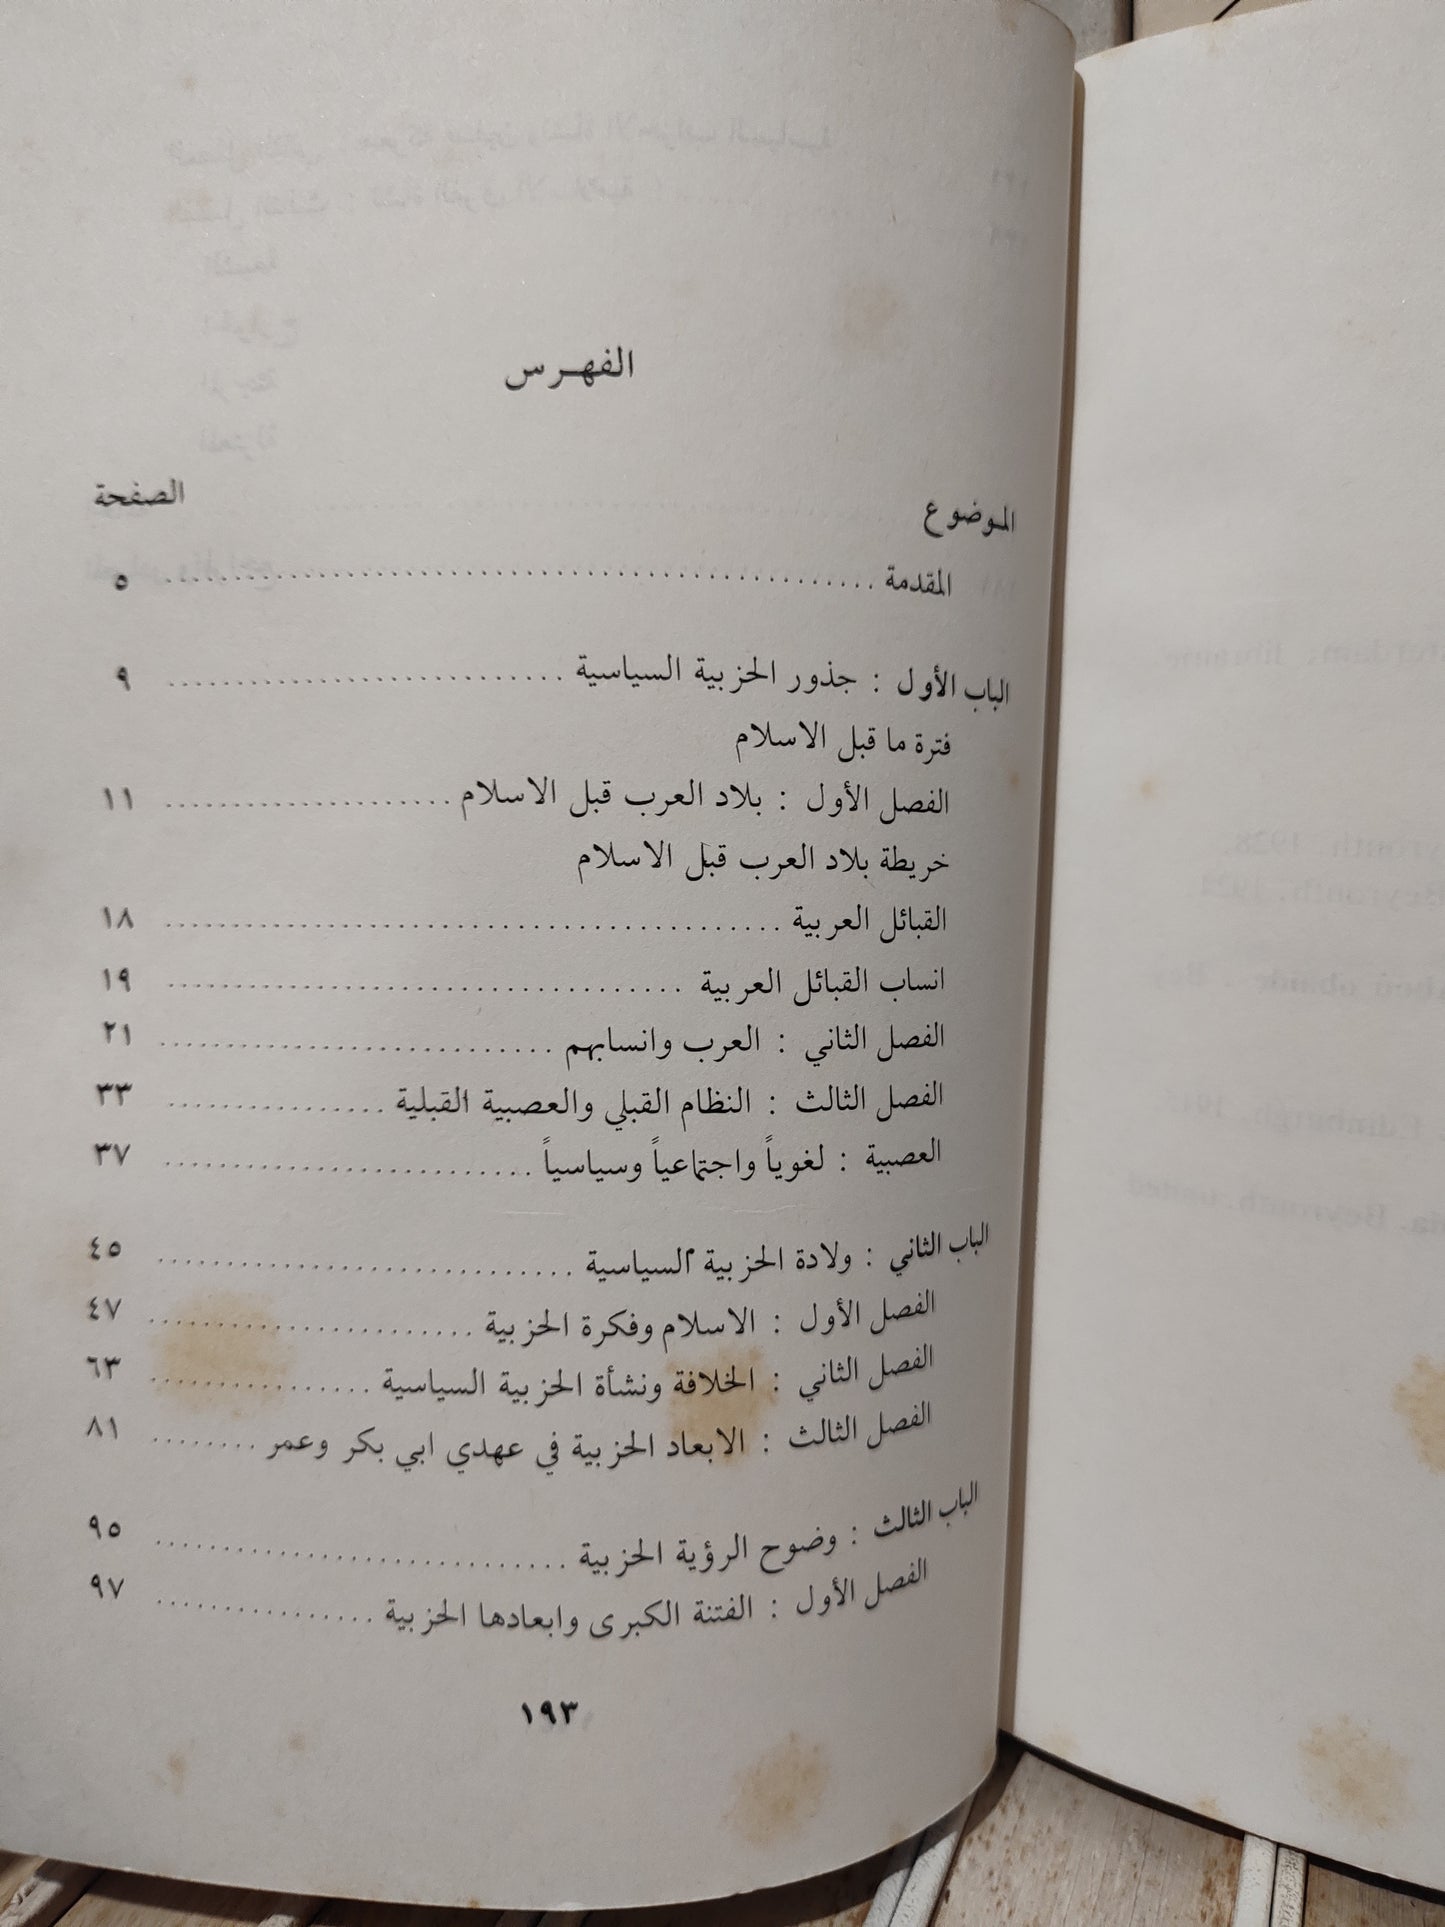 الفهـرس
الموضوع الصفحة
المقدمة ٥
الباب الأول : جذور الحزبية السياسية ٩
فترة ما قبل الاسلام
الفصل الأول : بلاد العرب قبل الاسلام ١١
خريطة بلاد العرب قبل الاسلام
القبائل العربية ١٨
انساب القبائل العربية ١٩
الفصل الثاني : العرب وانسابهم ٢١
الفصل الثالث : النظام القبلي والعصبية القبلية ٣٣
العصبية : لغوياً واجتماعياً وسياسياً ٣٧
الباب الثاني : ولادة الحزبية السياسية ٤٥
الفصل الأول : الاسلام وفكرة الحزبية ٤٧
الفصل الثاني : الخلافة ونشأة الحزبية السياسية ٦٣
الفصل الثالث : الابعاد الحزبية في عهدي ابي بكر وعمر ٨١
الباب الثالث : وضوح الرؤية الحزبية ٩٥
الفصل الأول : الفتنة الكبرى وابعادها الحزبية ٩٧
١٩٣